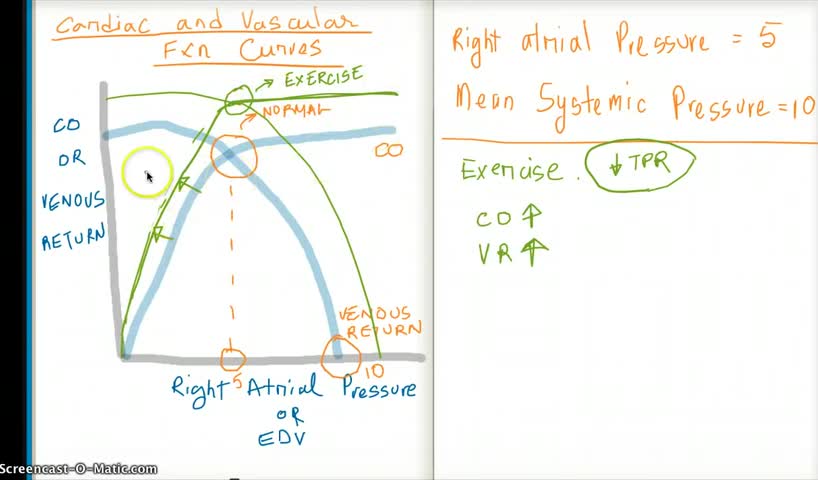 Cardiac and Vascular
Fxn Curves
EXERCISE
NORMAL
CO
OR
VENOUS
RETURN
CO
VENOUS
RETURN
5
10
Right Atrial Pressure
OR
EDV
Right atrial Pressure = 5
Mean Systemic Pressure = 10
Exercise. ↓ TPR
CO ↑
VR ↑
Screencast-O-Matic.com